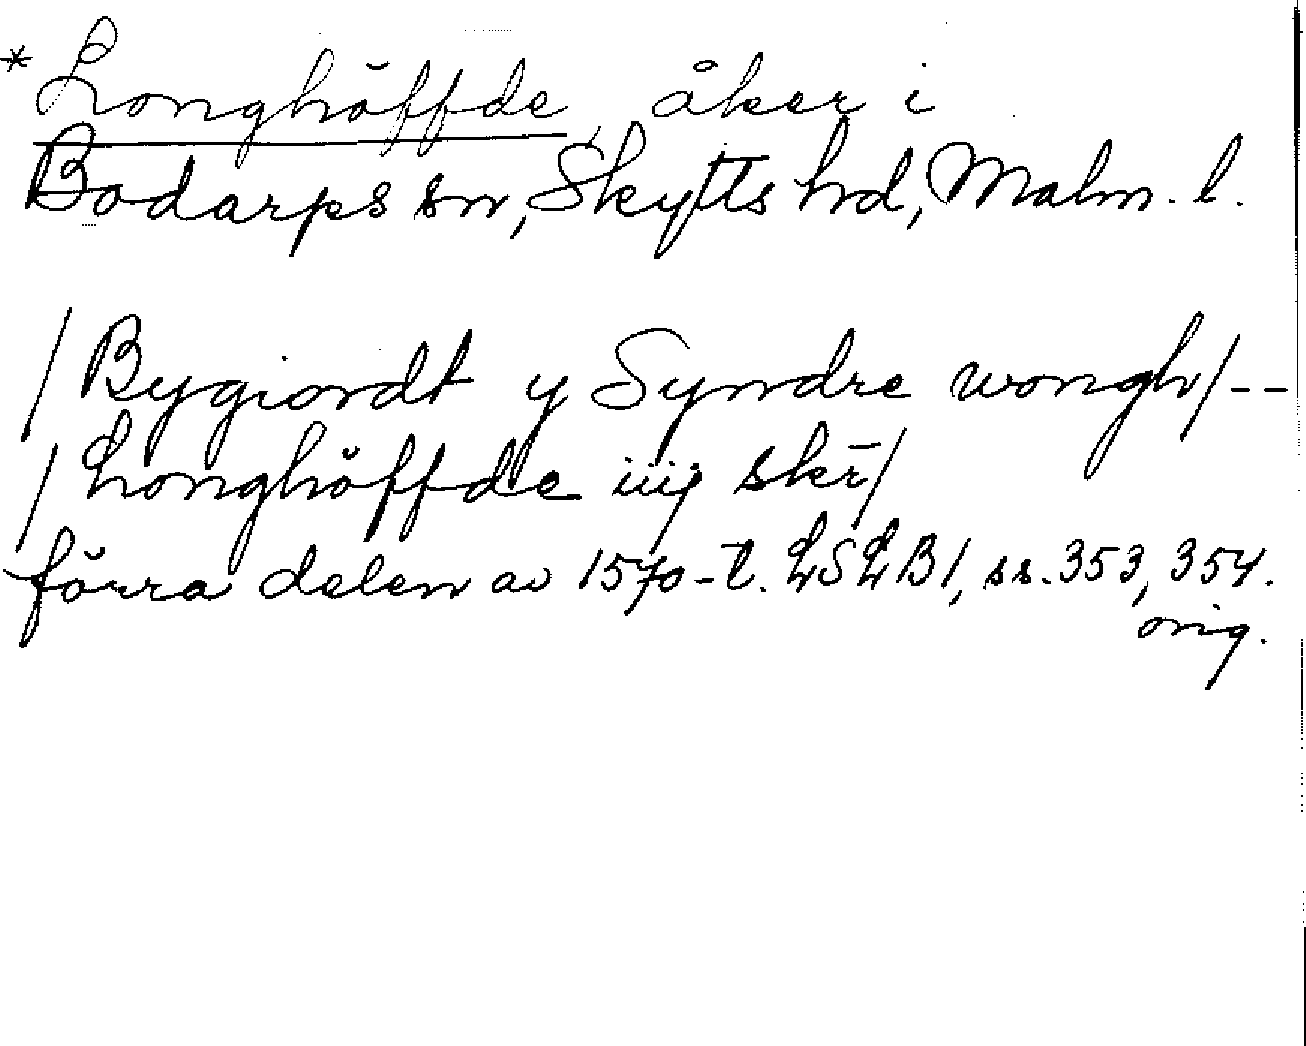 * Longhöffde, åker i
Bodarps sn, Skytts hd, Malm. l.
/Bygiordt y Syndre wongh/--
/Longhöffde iiij skr̄/
förra delen av 1570-t. LSLB1, ss. 353, 354.
orig.